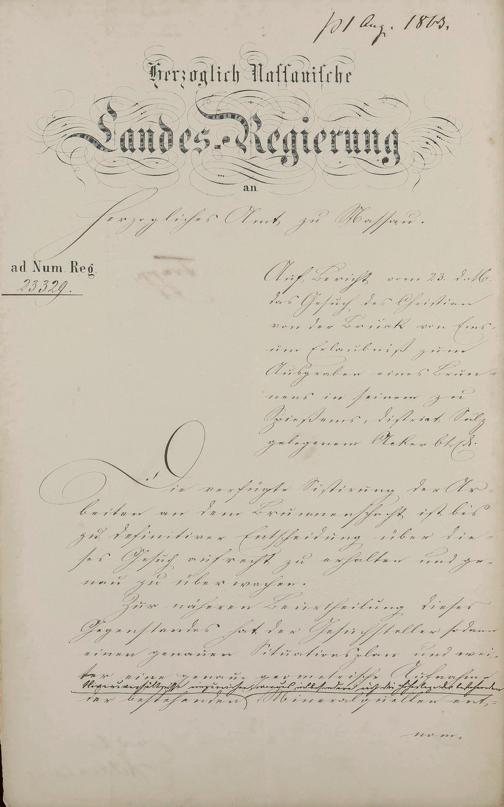 1 Aug. 1863.
Herzoglich Nassauische
Landes-Regierung
an
Herzogliches Amt zu Nassau.
ad Num. Reg.
23329.
Auf Bericht vom 23. d. M.
das Gesuch des Christian
von der Brück von Ems
um Erlaubniß zum
Ausgraben eines Brun-
nens in seinem zu
Spießems, District Sulz
gelegenen Acker btr.
Die verfügte Sistirung der Ar-
beiten an dem Brunnenschacht ist bis
zu definitiver Entscheidung über die-
ses Gesuch aufrecht zu erhalten und ge-
nau zu überwachen.
Zur näheren Beurtheilung dieses
Gegenstandes hat der Gesuchsteller sodann
einen genauen Situationsplan und wei-
ter eine genaue geometrische Aufnahme
der bestehenden Mineralquellen ent-